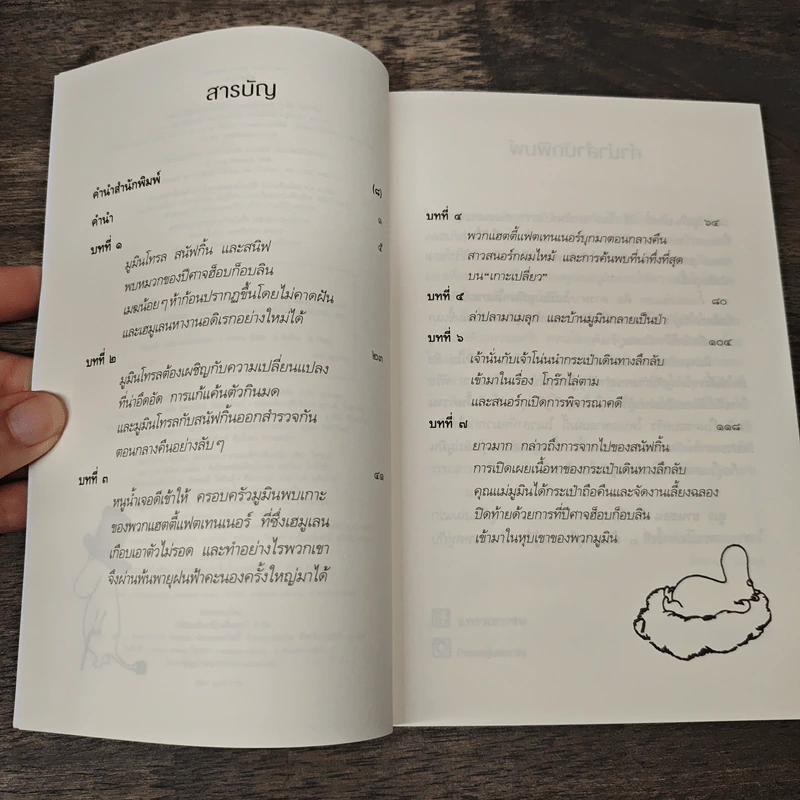 สารบัญ
คำนำสำนักพิมพ์ (๘)
คำนำ ๑
บทที่ ๑ ๕
มูมินโทรล สนัฟกิ้น และสนิฟ
พบหมวกของปีศาจฮ็อบก็อบลิน
เมฆน้อยๆ ห้าก้อนปรากฏขึ้นโดยไม่คาดฝัน
และเฮมูเลนหางานอดิเรกอย่างใหม่ได้
บทที่ ๒ ๒๓
มูมินโทรลต้องเผชิญกับความเปลี่ยนแปลง
ที่น่าอึดอัด การแก้แค้นตัวกินมด
และมูมินโทรลกับสนัฟกิ้นออกสำรวจกัน
ตอนกลางคืนอย่างลับๆ
บทที่ ๓ ๔๑
หนูน้ำเจอดีเข้าให้ ครอบครัวมูมินพบเกาะ
ของพวกแฮตตี้แฟตเทนเนอร์ ที่ซึ่งเฮมูเลน
เกือบเอาตัวไม่รอด และทำอย่างไรพวกเขา
จึงผ่านพ้นพายุฝนฟ้าคะนองครั้งใหญ่มาได้
บทที่ ๔ ๖๔
พวกแฮตตี้แฟตเทนเนอร์บุกมาตอนกลางคืน
สาวสนอร์กผมไหม้ และการค้นพบที่น่าทึ่งที่สุด
บน“เกาะเปลี่ยว”
บทที่ ๕ ๘๐
ล่าปลามาเมลุก และบ้านมูมินกลายเป็นป่า
บทที่ ๖ ๑๐๔
เจ้านั่นกับเจ้าโน่นนำกระเป๋าเดินทางลึกลับ
เข้ามาในเรื่อง โกร๊กไล่ตาม
และสนอร์กเปิดการพิจารณาคดี
บทที่ ๗ ๑๑๘
ยาวมาก กล่าวถึงการจากไปของสนัฟกิ้น
การเปิดเผยเนื้อหาของกระเป๋าเดินทางลึกลับ
คุณแม่มูมินได้กระเป๋าถือคืนและจัดงานเลี้ยงฉลอง
ปิดท้ายด้วยการที่ปีศาจฮ็อบก็อบลิน
เข้ามาในหุบเขาของพวกมูมิน